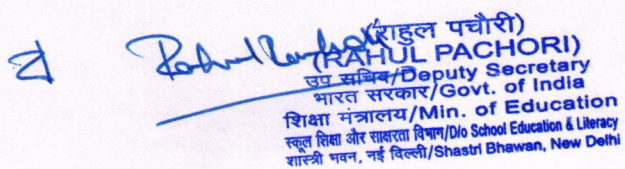 (राहुल पचौरी)
(RAHUL PACHORI)
उप सचिव/Deputy Secretary
भारत सरकार/Govt. of India
शिक्षा मंत्रालय/Min. of Education
स्कूल शिक्षा और साक्षरता विभाग/D/o School Education & Literacy
शास्त्री भवन, नई दिल्ली/Shastri Bhawan, New Delhi